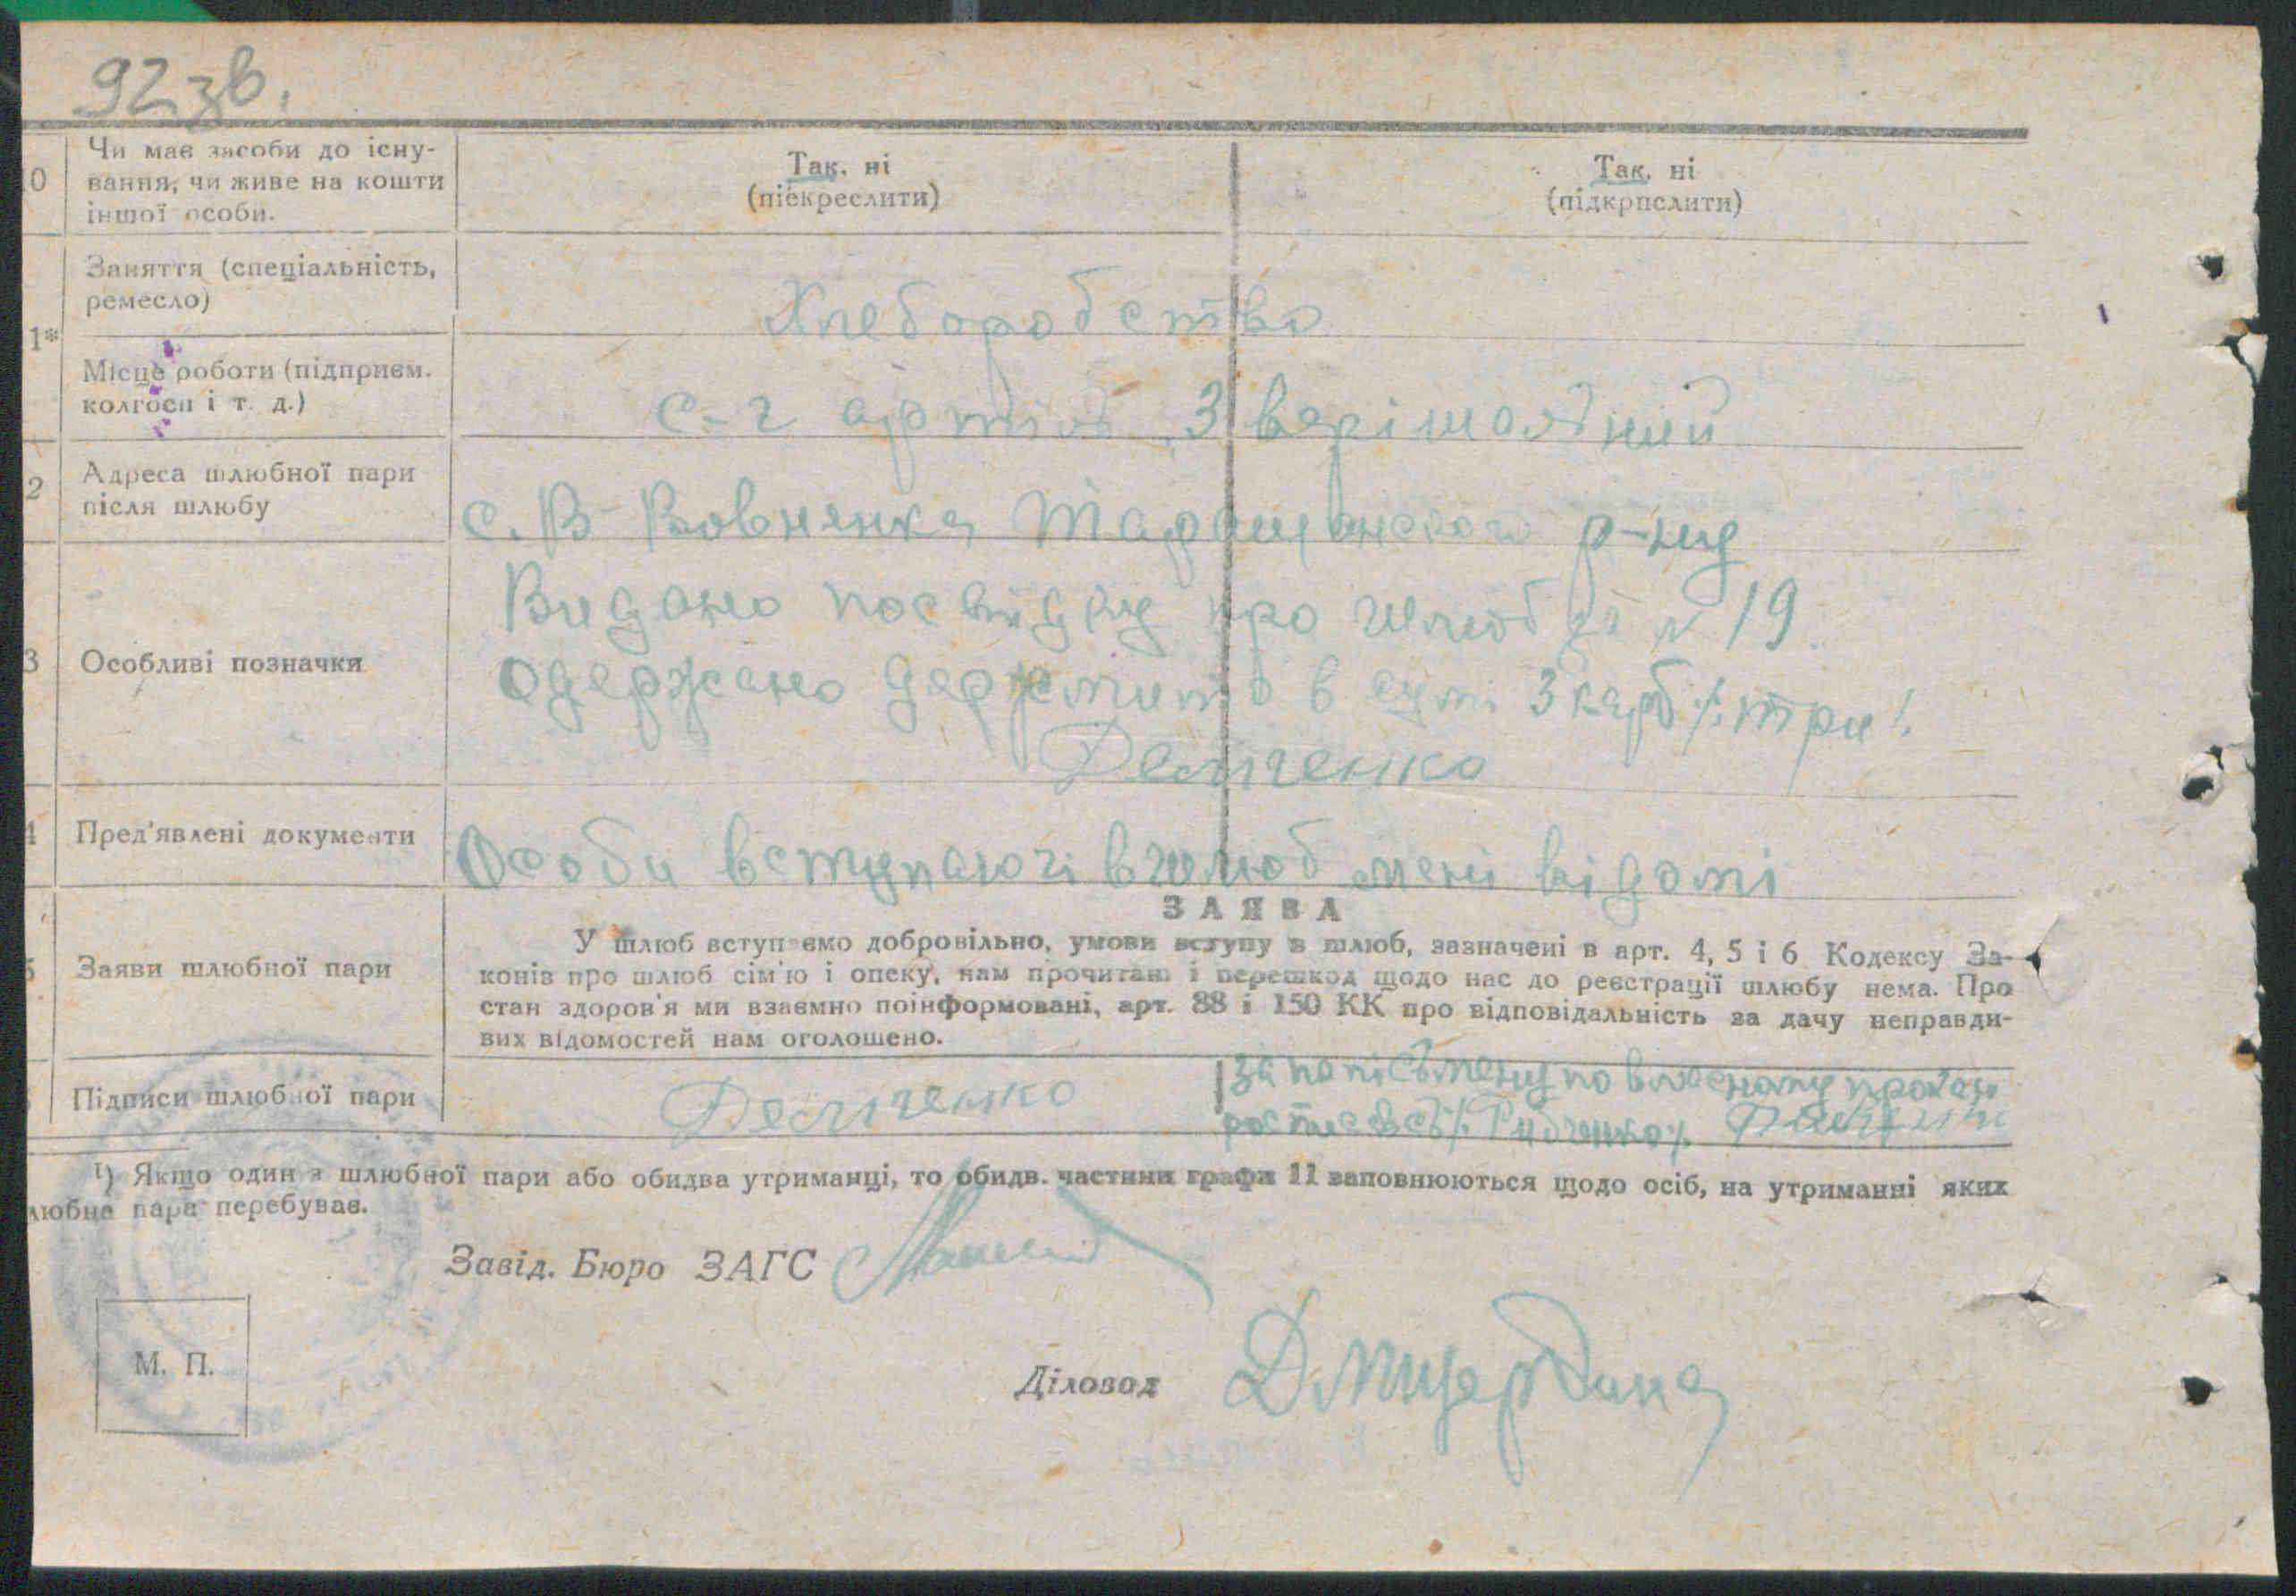 92 зв.
0 Чи має засоби до існу-
вання, чи живе на кошти
іншої особи.
Так, ні
(піекреслити)
Так, ні
(підкрпслити)
1* Заняття (спеціальність,
ремесло)
Хлебородство
Місце роботи (підприєм.
колгосп і т. д.)
С-г артіль 3 верішальний
2 Адреса шлюбної пари
після шлюбу
с. В-Вовнянка Таращанского р-ну
3 Особливі позначки
Видано посвідку про шлюб за № 19.
Одержано держмито в сумі 3 карб /три/.
Демченко
4 Пред'явлені документи
Особи вступаючі в шлюб мені відомі
ЗАЯВА
5 Заяви шлюбної пари
У шлюб вступаємо добровільно, умови вступу в шлюб, зазначені в арт. 4, 5 і 6 Кодексу За-
конів про шлюб сім'ю і опеку, нам прочитані і перешкод щодо нас до реєстрації шлюбу нема. Про
стан здоров'я ми взаємно поінформовані, арт. 88 і 150 КК про відповідальність за дачу неправди-
вих відомостей нам оголошено.
Підписи шлюбної пари
Демченко
за неписьмену по власному прохан
росписавсь /Рибченко/
¹) Якщо один з шлюбної пари або обидва утриманці, то обидв. частини графи 11 заповнюються щодо осіб, на утриманні яких
любна пара перебуває.
Завід. Бюро ЗАГС
М. П.
Діловод